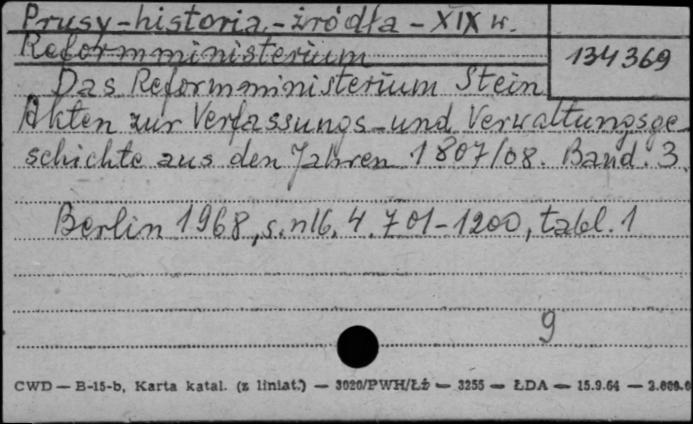 Prusy-historia-źródła-XIX w.
Reformministerium
134369
Das Reformministerium Stein
Akten zur Verfassungs-und Verwaltungsge-
schichte aus den Jahren 1807/08. Band. 3.
Berlin 1968, s. nlb. 4. 701-1200, tabl. 1
9
CWD — B-15-b, Karta katal. (z liniat.) — 3020/PWH/Łż — 3255 — ŁDA — 15.9.64 —